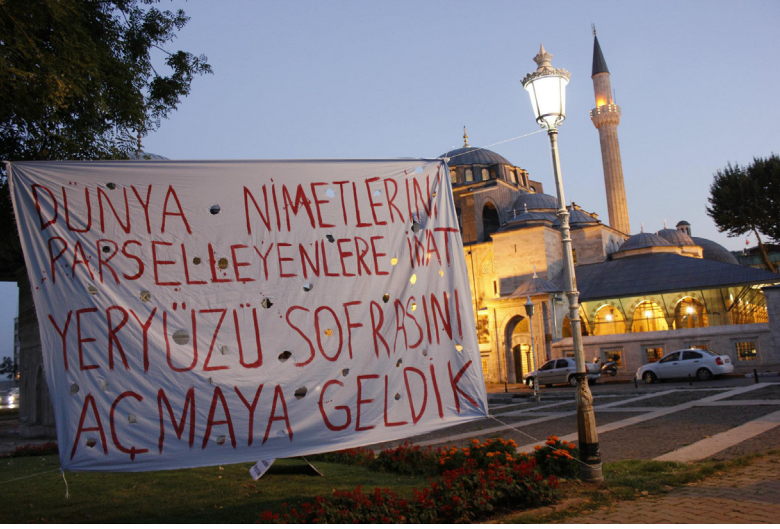 DÜNYA NİMETLERİNİ
PARSELLEYENLERE İNAT
YERYÜZÜ SOFRASINI
AÇMAYA GELDİK